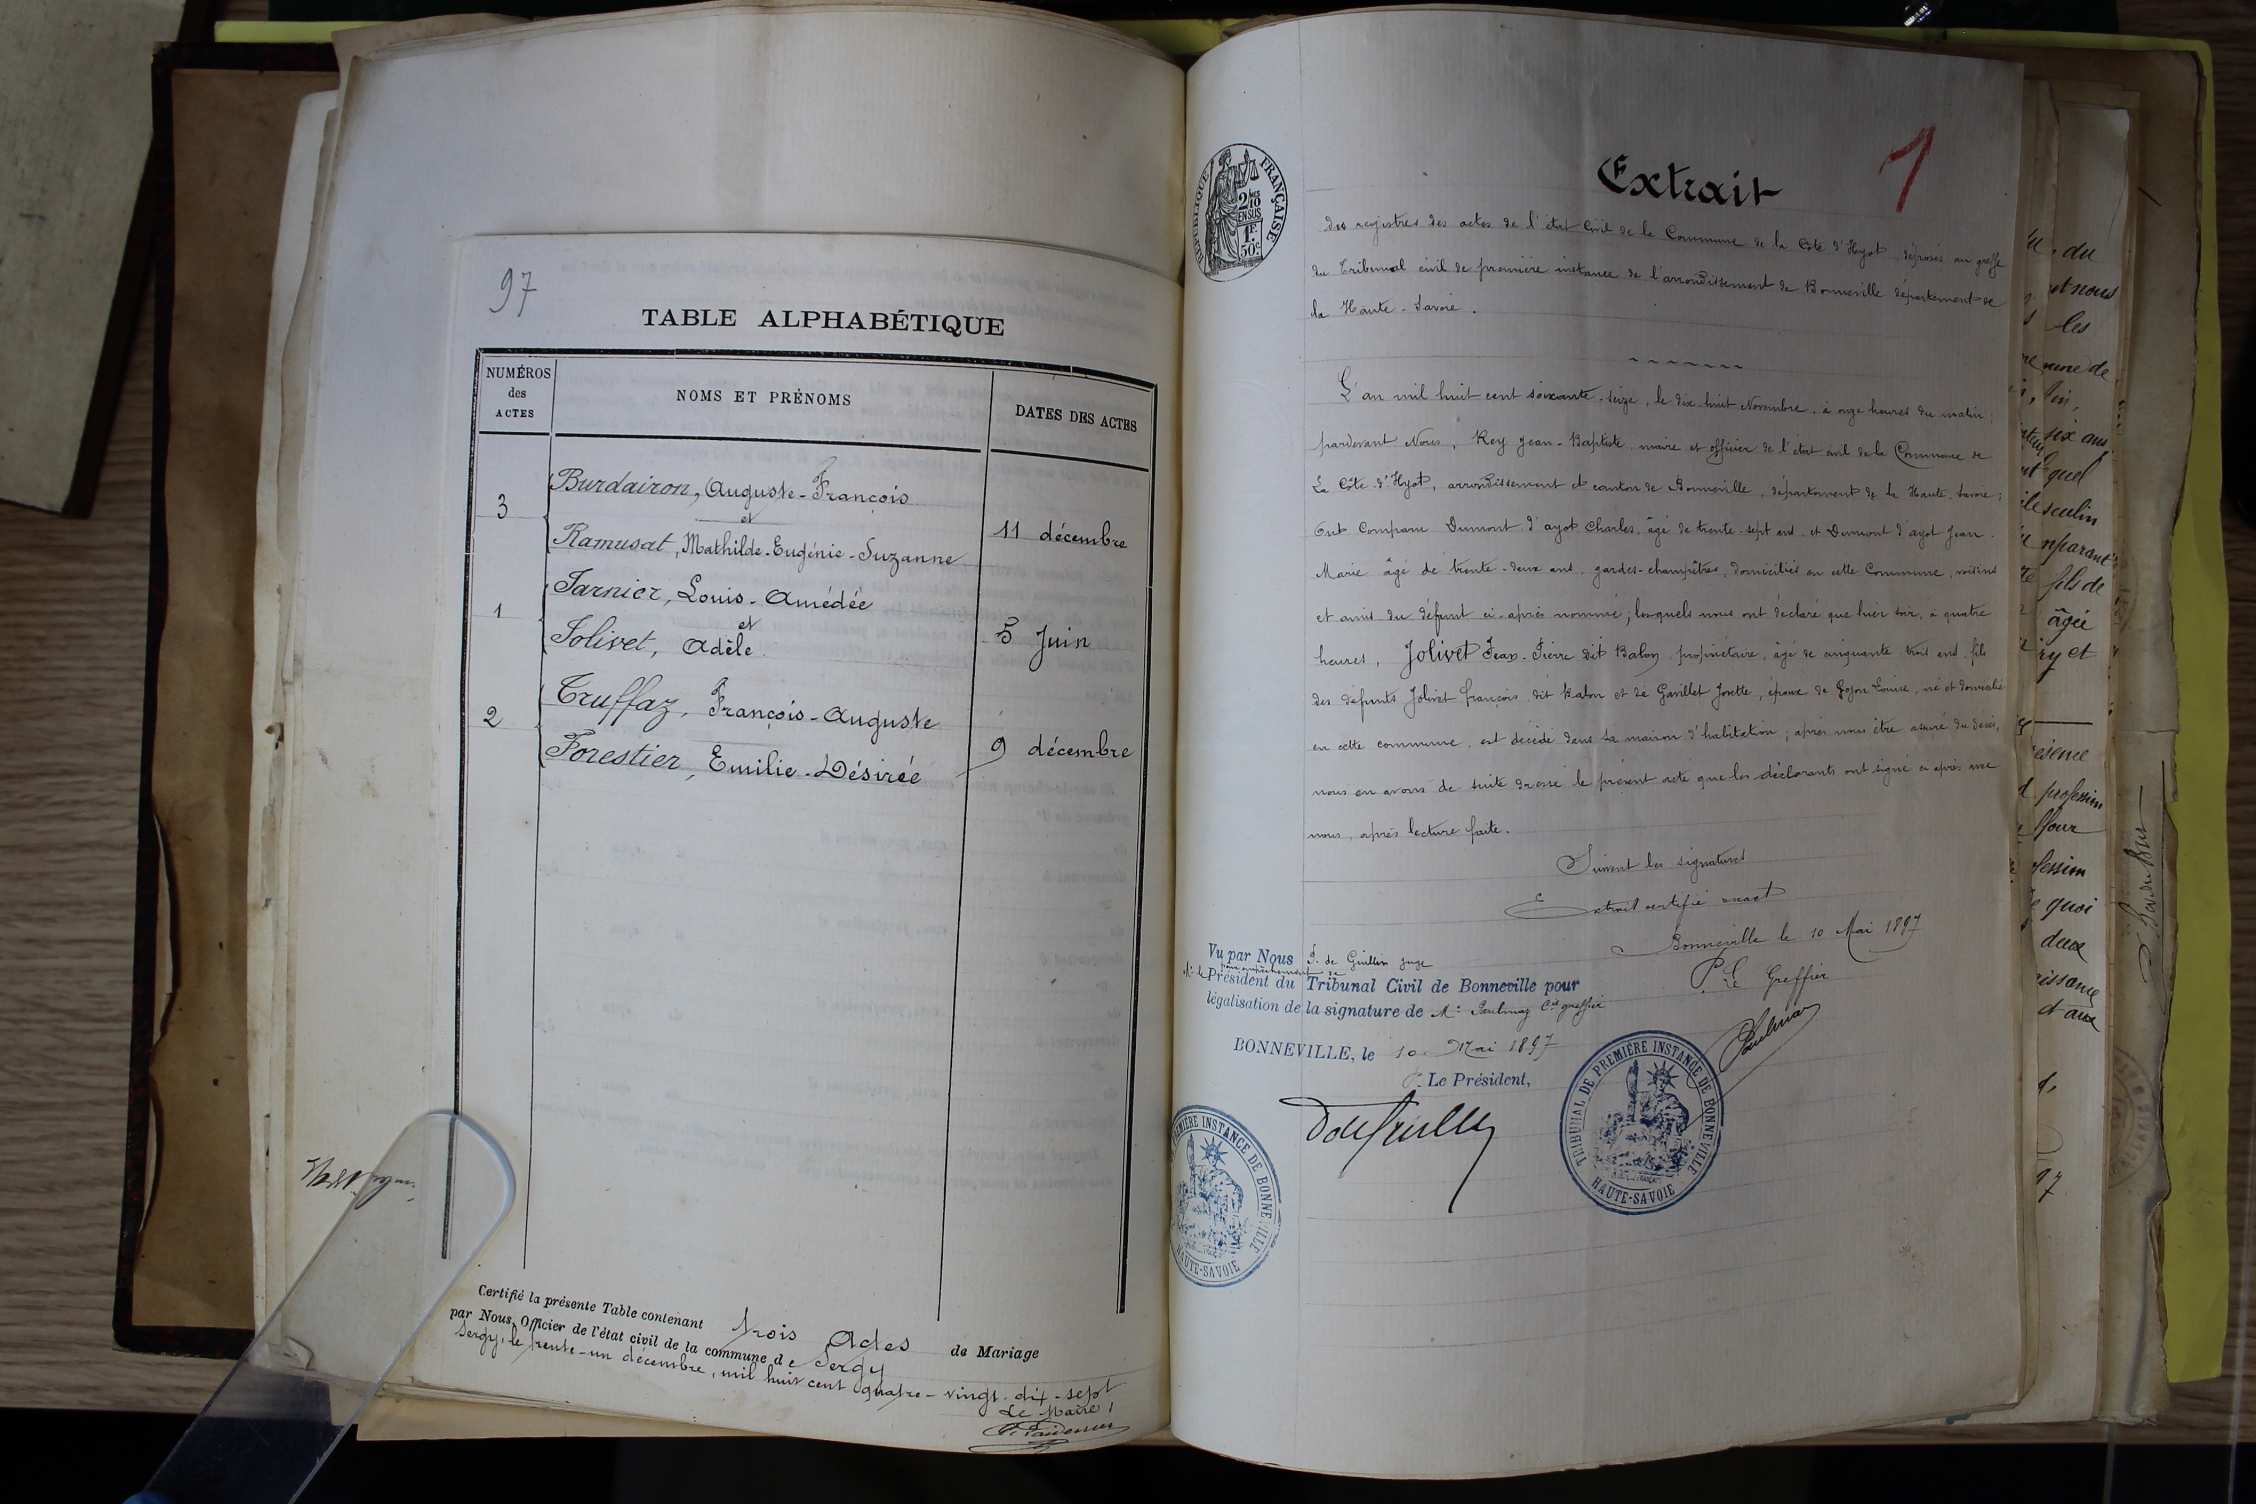 97
TABLE ALPHABÉTIQUE
NUMÉROS des ACTES
NOMS ET PRÉNOMS
DATES DES ACTES
3
Burdairon, Auguste-François
et
Ramusat, Mathilde-Eugénie-Suzanne
11 décembre
1
Tarnier, Louis-Amédée
et
Jolivet, Adèle
5 Juin
2
Truffaz, François-Auguste
Forestier, Emilie-Désirée
9 décembre
Certifié la présente Table contenant trois Actes de Mariage
par Nous, Officier de l'état civil de la commune de Sergy
Sergy, le trente-un décembre, mil huit cent quatre-vingt-dix-sept
Le Maire,
1
RÉPUBLIQUE FRANÇAISE
2/10 EN SUS
1F. 50c.
Extrait
des registres des actes de l'état civil de la Commune de la Côte d'Hyot déposés au greffe
du Tribunal civil de première instance de l'arrondissement de Bonneville département de
la Haute-Savoie.
L'an mil huit cent soixante-seize, le dix huit Novembre, à onze heures du matin;
pardevant Nous, Rey Jean-Baptiste maire et officier de l'état civil de la Commune de
La Côte d'Hyot, arrondissement et canton de Bonneville, département de la Haute-Savoie;
Ont Comparu Dumont d'ayot Charles, âgé de trente-sept ans et Dumont d'ayot Jean-
Marie âgé de trente-deux ans, gardes-champêtres, domiciliés en cette Commune, voisins
et amis du défunt ci-après nommé; lesquels nous ont déclaré que hier soir, à quatre
heures, Jolivet Jean-Pierre dit Balon propriétaire, âgé de cinquante trois ans, fils
des défunts Jolivet françois dit Balon et de Gavillet Josette, époux de Gojon Louise, né et domicilié
en cette commune, est décédé dans sa maison d'habitation; après nous être assuré du décès,
nous en avons de suite dressé le présent acte que les déclarants ont signé ci après avec
nous, après lecture faite.
Suivent les signatures
Extrait certifié exact
Bonneville le 10 Mai 1897
P. Le Greffier
Vu par Nous de Guillin juge
pour empêchement de
Mr le Président du Tribunal Civil de Bonneville pour
légalisation de la signature de Mr greffier
BONNEVILLE, le 10 Mai 1897
P. Le Président,
TRIBUNAL DE PREMIÈRE INSTANCE DE BONNEVILLE
HAUTE-SAVOIE
PREMIÈRE INSTANCE DE BONNEVILLE
HAUTE-SAVOIE
du
et nous
les
mune de
six ans
quel
sculin
nparant
fils de
âgée
ry et
ésence
profession
jour
fession
quoi
deux
issance
et aux
97